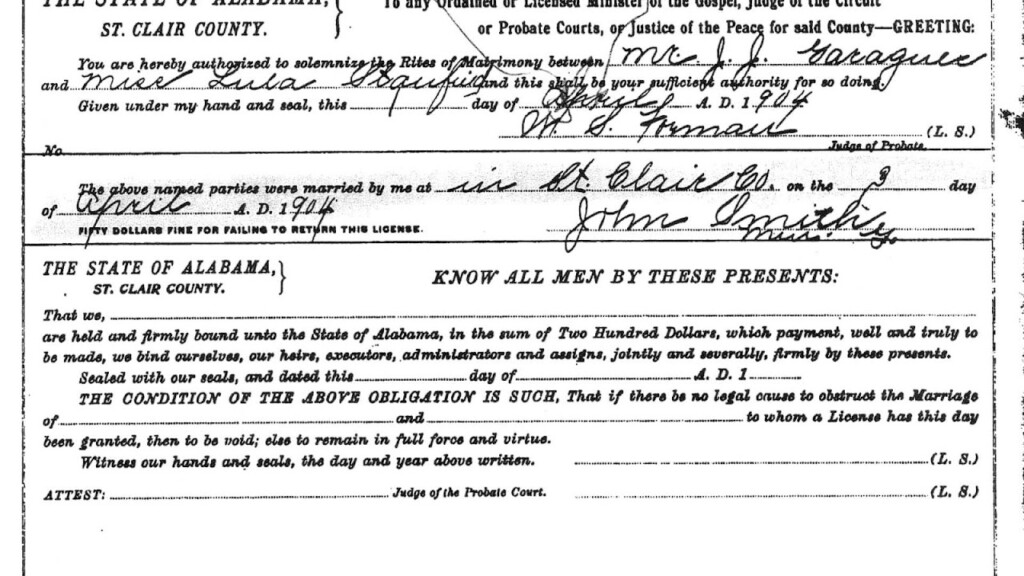 THE STATE OF ALABAMA,
ST. CLAIR COUNTY.
To any Ordained or Licensed Minister of the Gospel, Judge of the Circuit
or Probate Courts, or Justice of the Peace for said County—GREETING:
You are hereby authorized to solemnize the Rites of Matrimony between Mr J. J.
and Miss Lula and this shall be your sufficient authority for so doing.
Given under my hand and seal, this day of April A. D. 1904
W. S. Forman (L. S.)
No. Judge of Probate.
The above named parties were married by me at in St. Clair Co. on the 3 day
of April A. D. 1904 John Smith
FIFTY DOLLARS FINE FOR FAILING TO RETURN THIS LICENSE.
THE STATE OF ALABAMA,
ST. CLAIR COUNTY.
KNOW ALL MEN BY THESE PRESENTS:
That we,
are held and firmly bound unto the State of Alabama, in the sum of Two Hundred Dollars, which payment, well and truly to
be made, we bind ourselves, our heirs, executors, administrators and assigns, jointly and severally, firmly by these presents.
Sealed with our seals, and dated this day of A. D. 1
THE CONDITION OF THE ABOVE OBLIGATION IS SUCH, That if there be no legal cause to obstruct the Marriage
of and to whom a License has this day
been granted, then to be void; else to remain in full force and virtue.
Witness our hands and seals, the day and year above written. (L. S.)
ATTEST: Judge of the Probate Court. (L. S.)